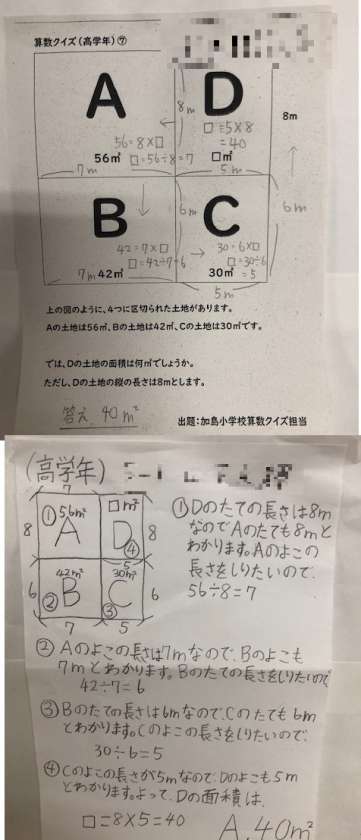 算数クイズ(高学年)⑦
A
D
8m
8m
56=8×□
□=56÷8=7
56㎡
7m
□=5×8
=40
□㎡
5m
B
C
6m
6m
42=7×□
□=42÷7=6
7m
42㎡
30=6×□
□=30÷6
=5
30㎡
5m
上の図のように、4つに区切られた土地があります。
Aの土地は56㎡、Bの土地は42㎡、Cの土地は30㎡です。
では、Dの土地の面積は何㎡でしょうか。
ただし、Dの土地の縦の長さは8mとします。
答え 40㎡
出題:加島小学校算数クイズ担当
(高学年)
7
8
①56㎡
A
□㎡
D
④
8
5
6
42㎡
②B
30㎡
C
③
6
7
5
①Dのたての長さは8m
なのでAのたても8mと
わかります。Aのよこの
長さをしりたいので、
56÷8=7
②Aのよこの長さは7mなので、Bのよこも
7mとわかります。Bのたての長さをしりたいので
42÷7=6
③Bのたての長さは6mなので、Cのたても6m
とわかります。Cのよこの長さをしりたいので、
30÷6=5
④Cのよこの長さが5mなので、Dのよこも5m
とわかります。よって、Dの面積は、
□=8×5=40
A.40㎡